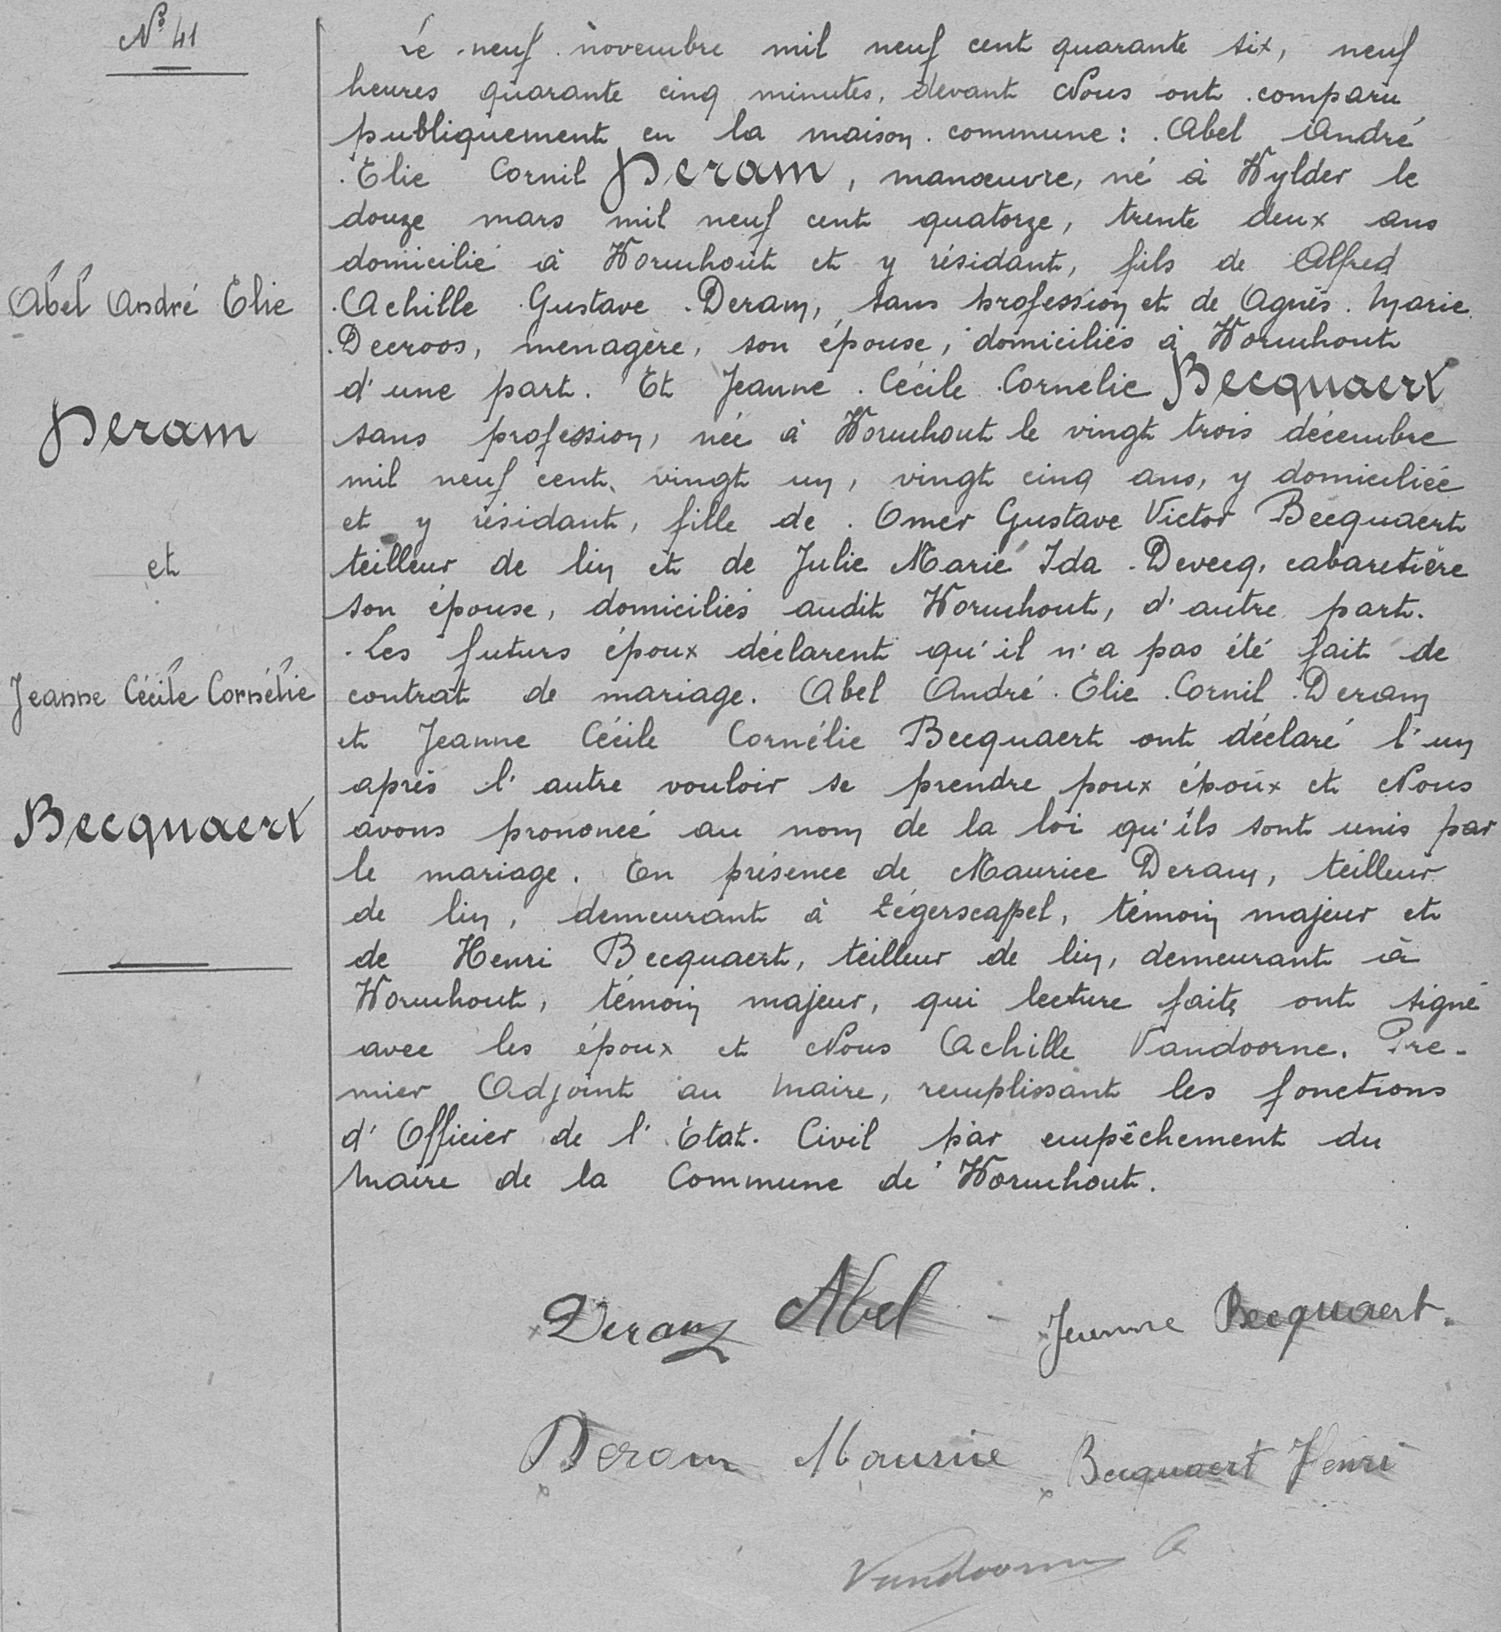 N° 41
Abel André Elie
Deram
et
Jeanne Cécile Cornélie
Becquaert
Le neuf novembre mil neuf cent quarante six, neuf
heures quarante cinq minutes, devant Nous ont comparu
publiquement en la maison commune : Abel André
Elie Cornil Deram, manœuvre, né à Wylder le
douze mars mil neuf cent quatorze, trente deux ans
domicilié à Wormhout et y résidant, fils de Alfred
Achille Gustave Deram, sans profession et de Agnès Marie
Decroos, ménagère, son épouse, domiciliés à Wormhout
d'une part. Et Jeanne Cécile Cornélie Becquaert
sans profession, née à Wormhout le vingt trois décembre
mil neuf cent vingt un, vingt cinq ans, y domiciliée
et y résidant, fille de Omer Gustave Victor Becquaert
teilleur de lin et de Julie Marie Ida Devecq, cabaretière
son épouse, domiciliés audit Wormhout, d'autre part.
Les futurs époux déclarent qu'il n'a pas été fait de
contrat de mariage. Abel André Elie Cornil Deram
et Jeanne Cécile Cornélie Becquaert ont déclaré l'un
après l'autre vouloir se prendre poux époux et Nous
avons prononcé au nom de la loi qu'ils sont unis par
le mariage. En présence de Maurice Deram, teilleur
de lin, demeurant à Zégerscappel, témoin majeur et
de Henri Becquaert, teilleur de lin, demeurant à
Wormhout, témoin majeur, qui lecture faite ont signé
avec les époux et Nous Achille Vandoorne, Pre-
mier Adjoint au Maire, remplissant les fonctions
d'Officier de l'Etat-Civil par empêchement du
Maire de la Commune de Wormhout.
Deram Abel Jeanne Becquaert.
Deram Maurice Becquaert Henri
Vandoorne A